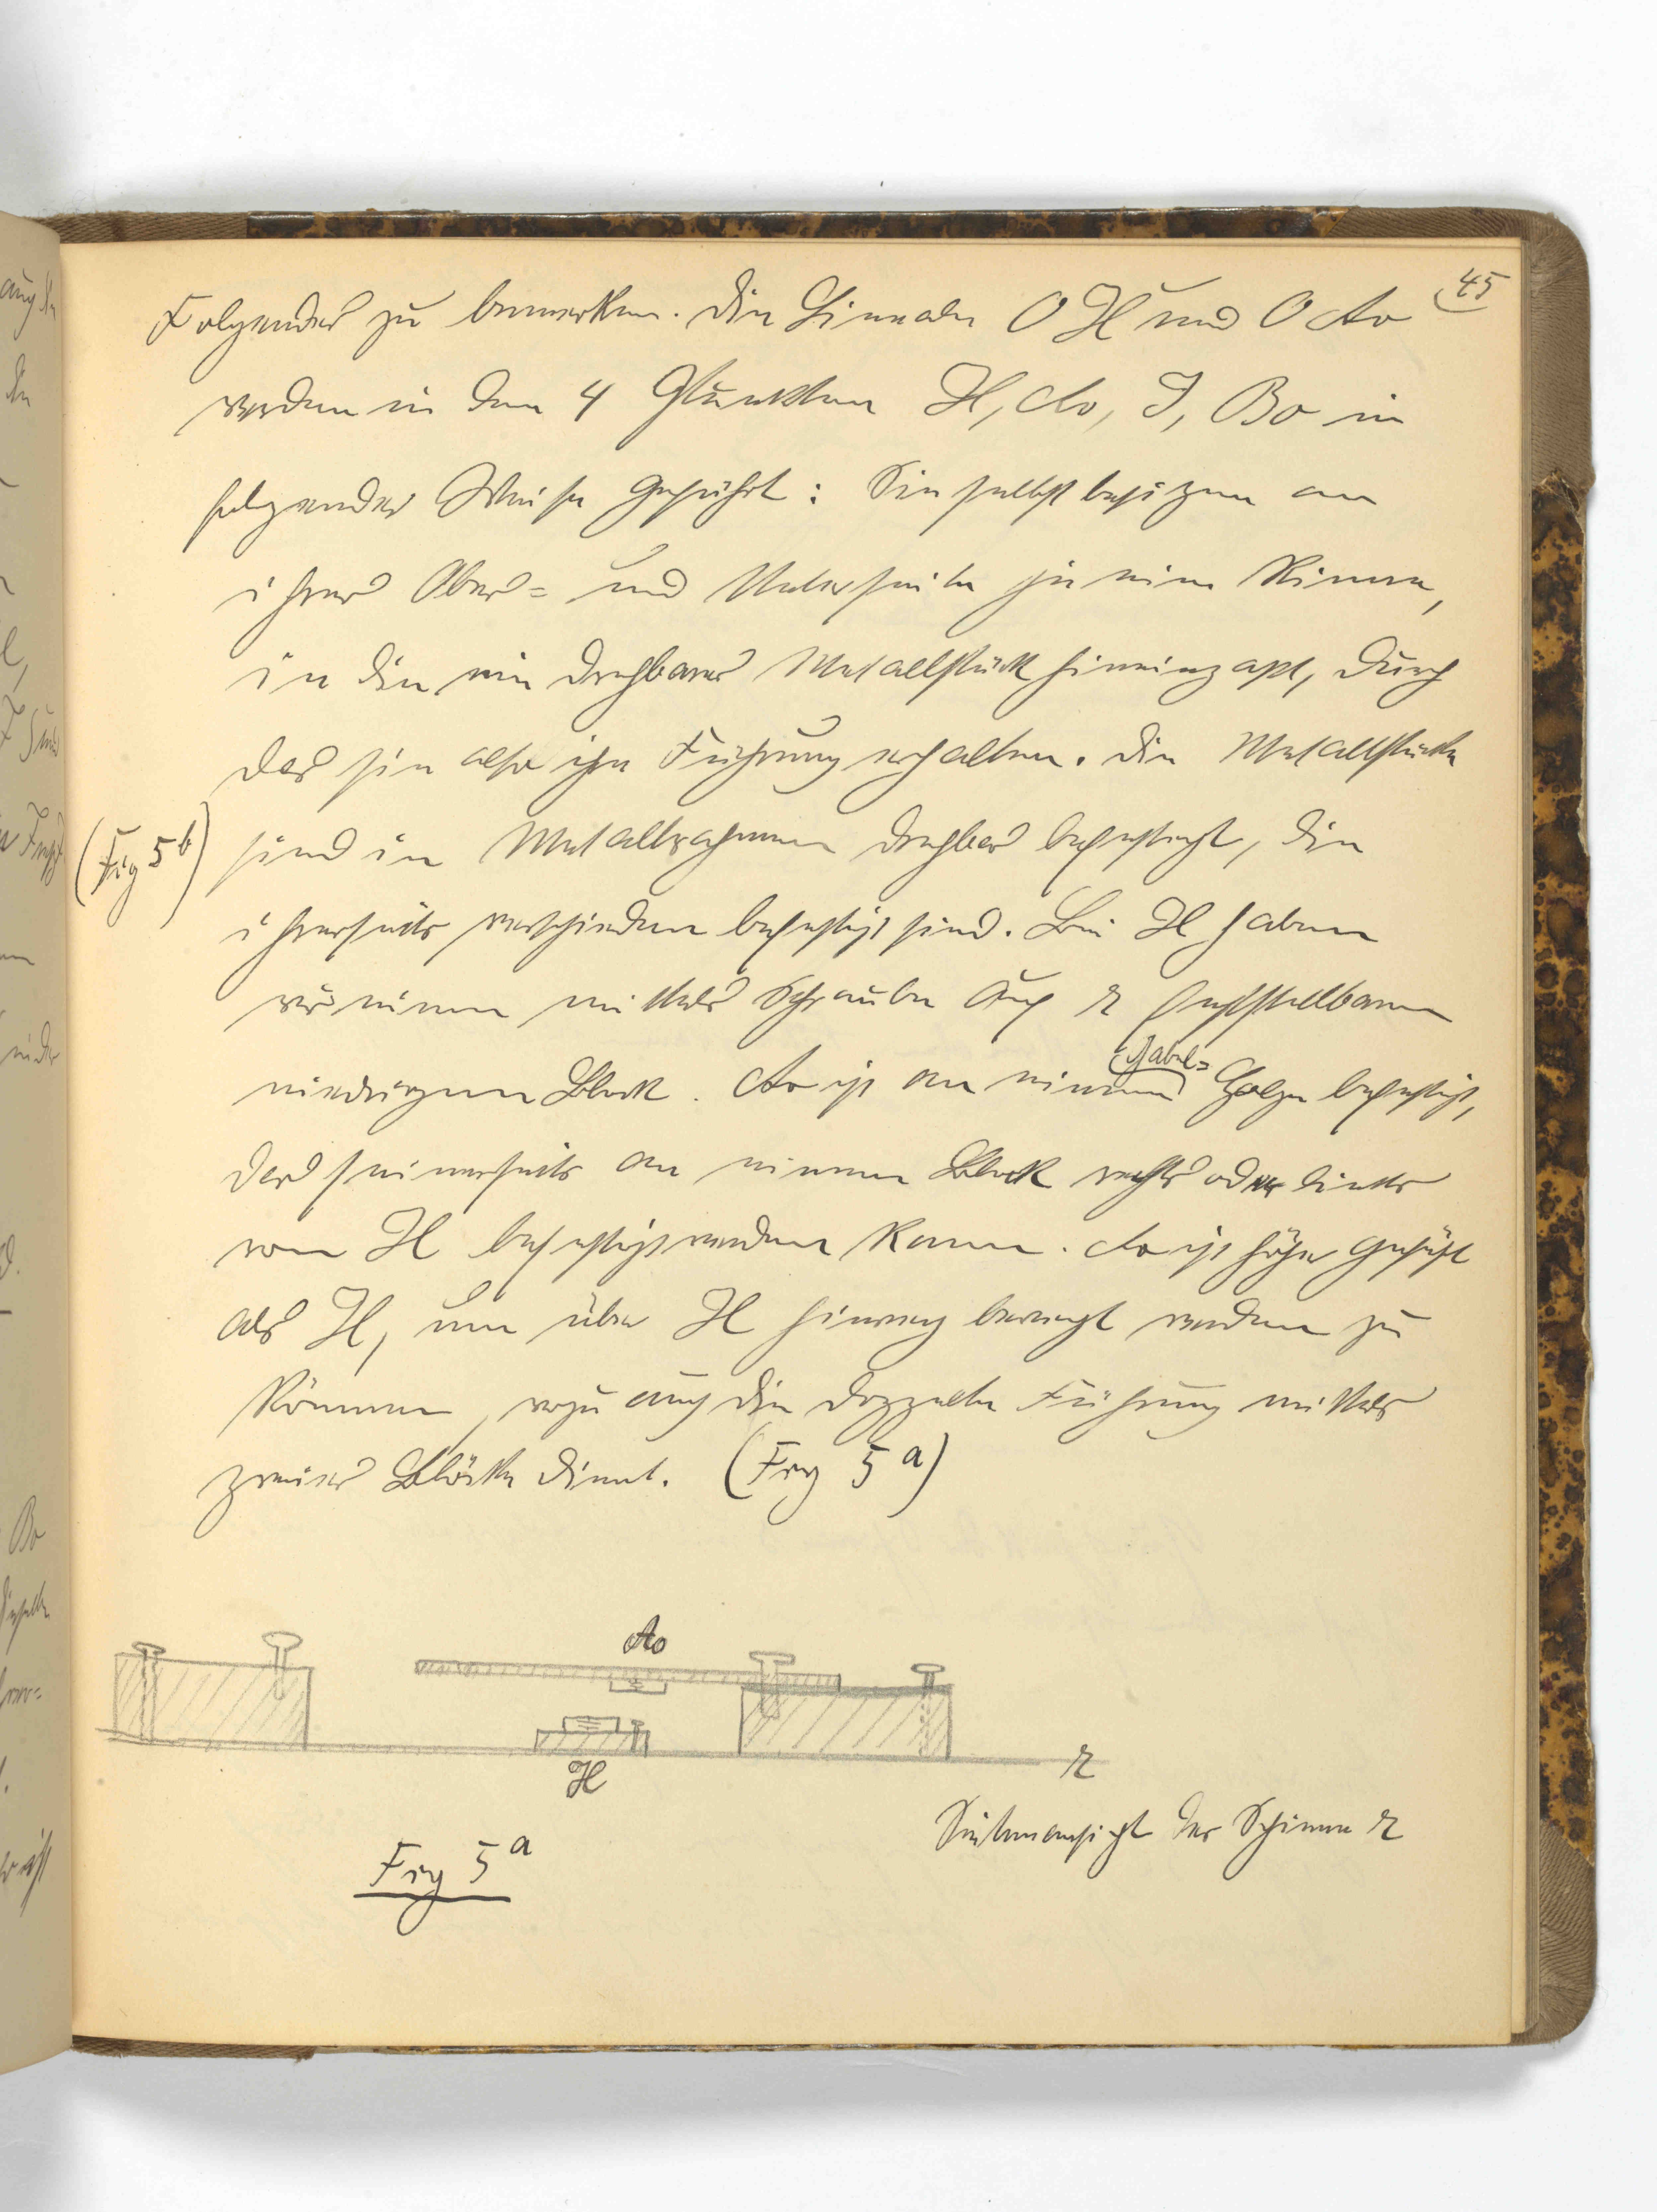 45
Folgendes zu bemerken. Die Lineale OH und OAo
werden in den 4 Punkten H, Ao, J, Bo in
folgender Weise geführt: Sie selbst besitzen an
ihrer Ober= und Unterseite je eine Rinne,
in die ein drehbares Metallstück hineinpaßt, durch
das sie also ihre Führung erhalten. Die Metallstücke
(Fig 5b) sind in Metallrahmen drehbar befestigt, die
ihrerseits verschieden befestigt sind. Bei H haben
wir einen mittels Schraube auf r feststellbaren
niedrigen Block. Ao ist an einer Gabel= befestigt,
der seinerseits an einem Block rechts oder links
von H befestigt werden kann. Ao ist höher geführt
als H, um über H hinweg bewegt werden zu
können, wozu auch die doppelte Führung mittels
zweier Blöcke dient. (Fig 5a)
Ao
H
r
Seitenansicht der Schiene r
Fig 5a